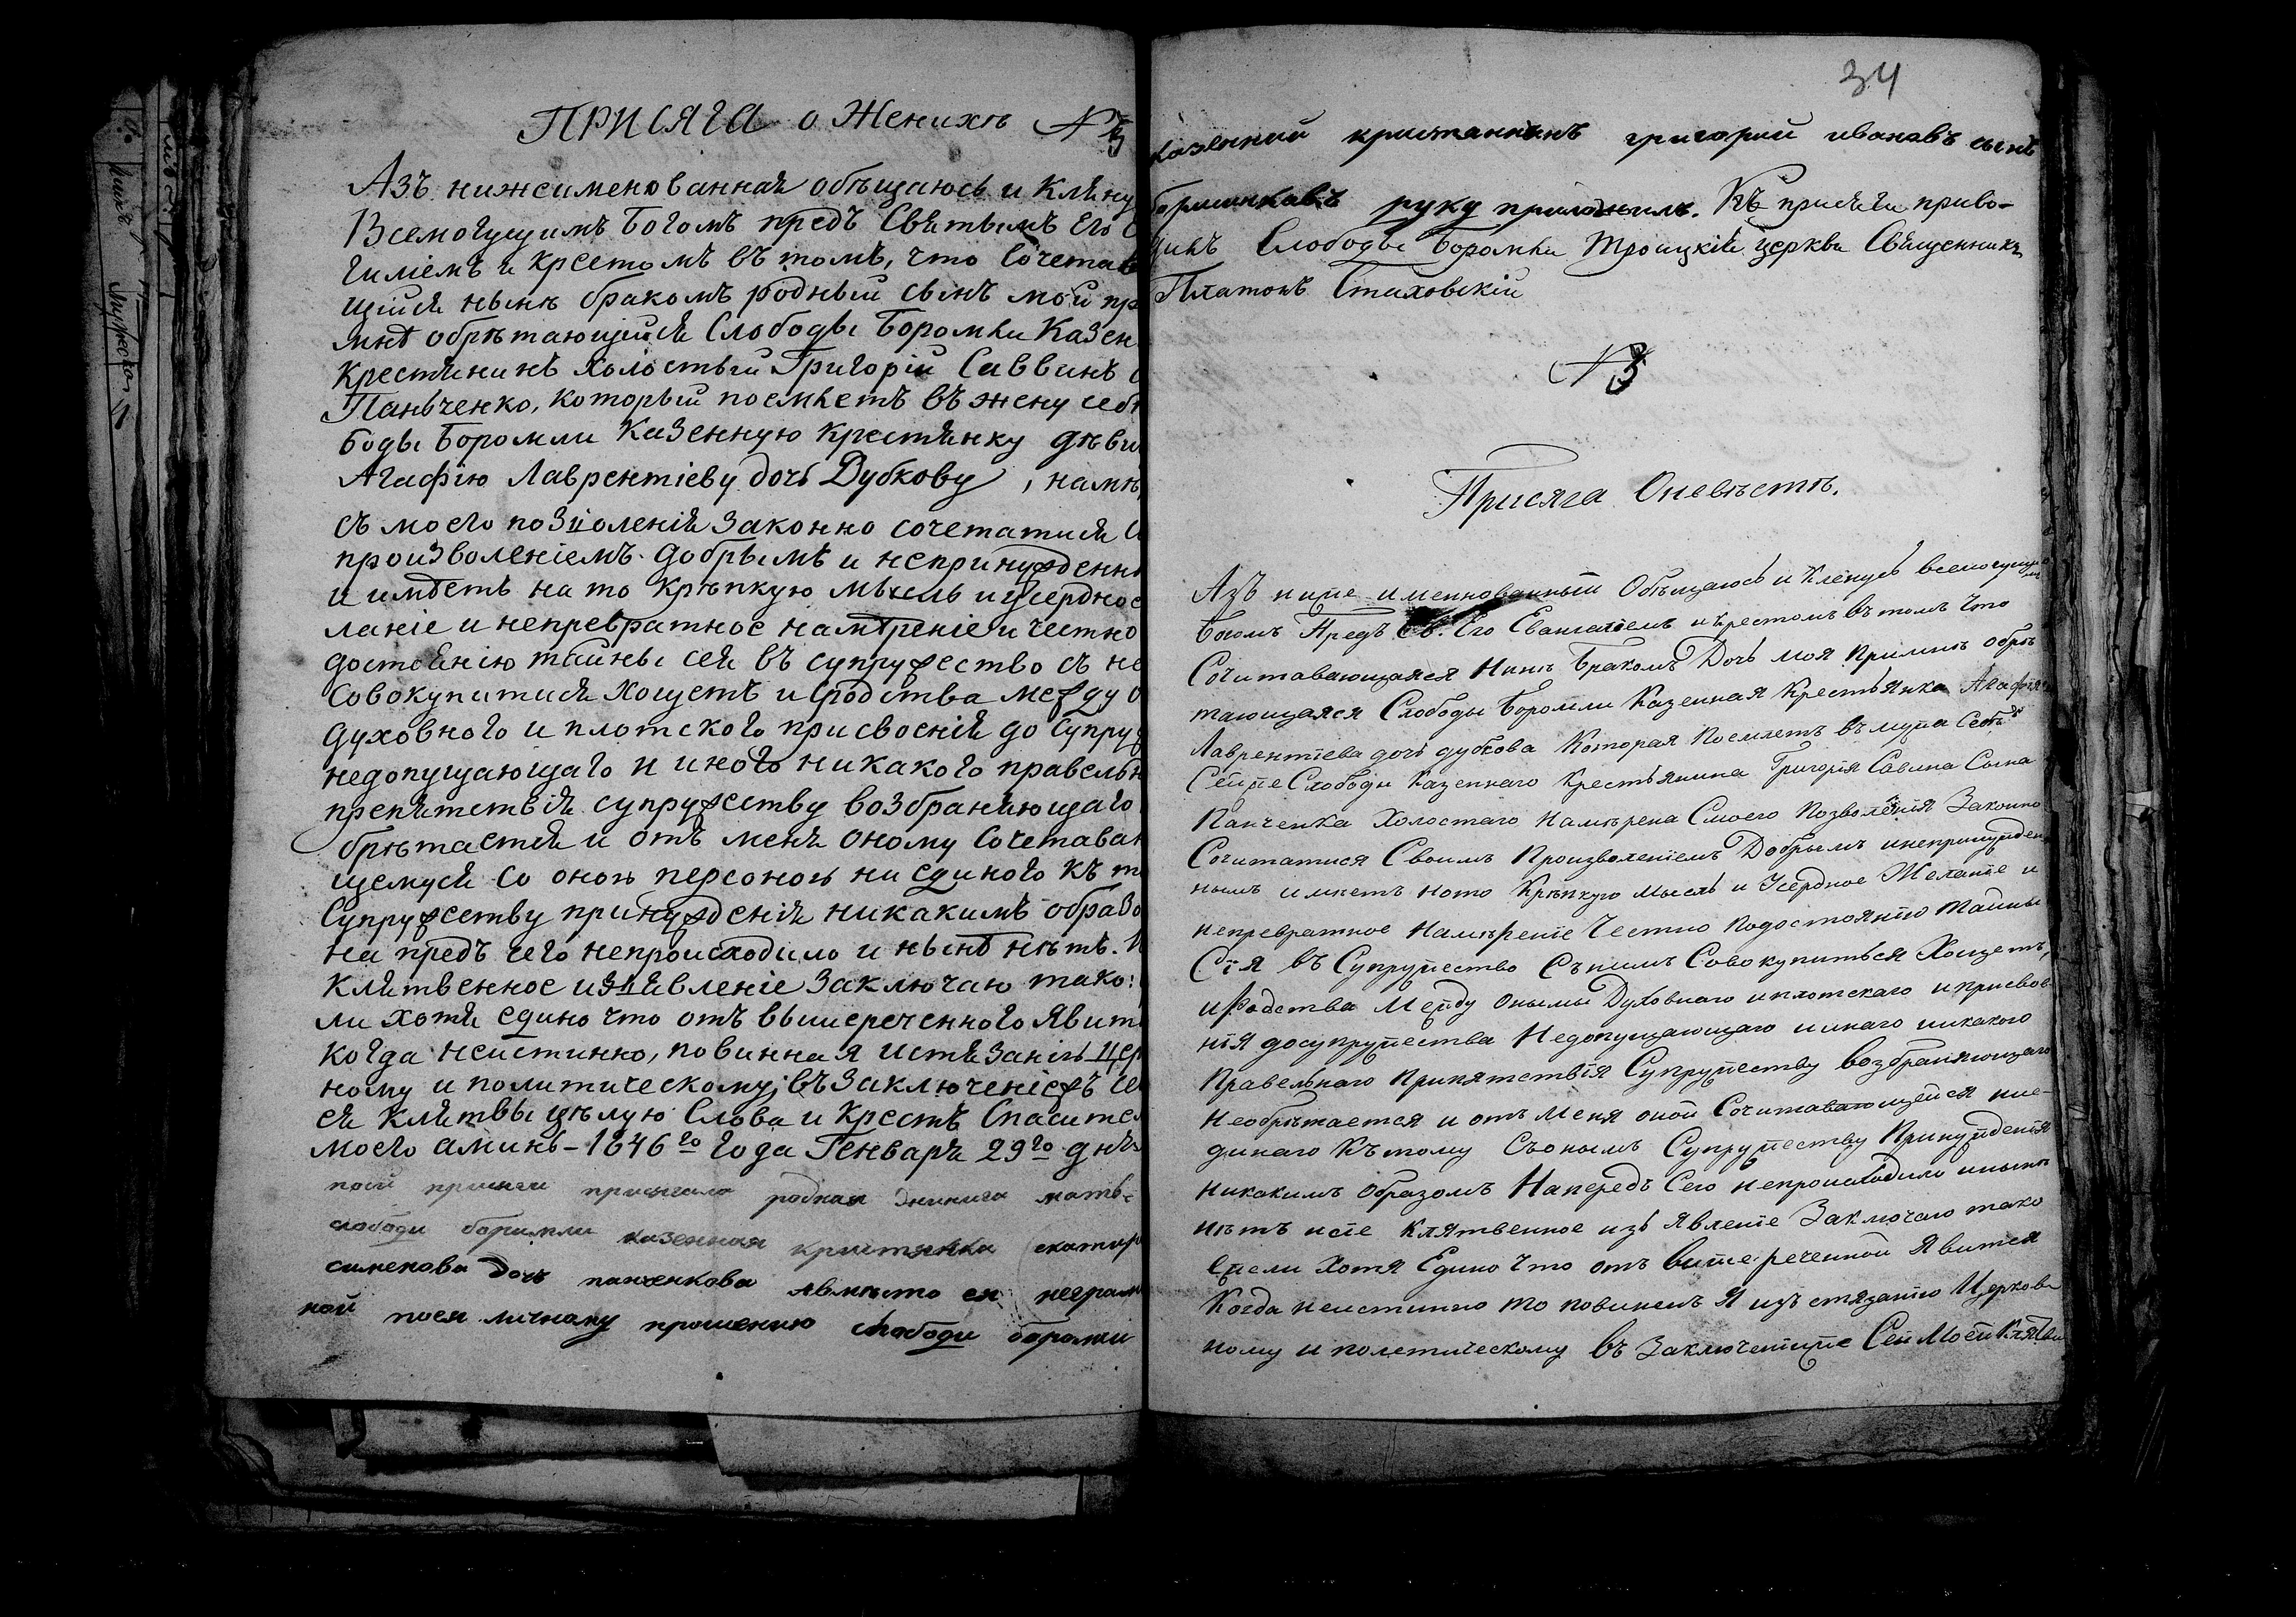 ПРИСЯГА о Женихѣ №3
Азъ нижеименованная обѣщаюсь и Кляну
Всемогущимъ Богомъ предъ Святымъ Его
гиліемъ и крестомъ въ томъ, что Сочетав
щійся нынѣ бракомъ родный сынъ мой пр
мнѣ обрѣтающійся Слободы Боромли Казен
Крестянинъ холостый Григорій Саввинъ
Панъченко, который поемлетъ въ жену себѣ
боды Боромли Казенную Крестянку дѣви
Агафію Лаврентіеву дочь Дубкову, намѣ
съ моего позволенія законно сочетатися
произволеніемъ добрымъ и непринужденн
и имѣетъ на то крѣпкую мысль и усердное
ланіе и непревратное намѣреніе и честно
достоянію тайны сея въ супружество съ не
Совокупитися хощетъ и сродства между
духовного и плотского присвоенія до супруж
недопущающаго и иного никакого правельн
препятствія супружеству возбраняющаго
брѣтается и отъ меня оному Сочетаваю
щемуся со оною персоною ни единого къ т
Супружеству принужденія никакимъ образо
на предъ сего непроисходило и нынѣ нѣтъ.
Клятвенное изъявленіе заключаю тако:
ли хотя едино что отъ вышереченного явит
когда неистинно, повинна я истязанію цер
ному и политическому; въ заключеніежъ се
ея клятвы цѣлую Слова и Крестъ Спасител
моего аминь - 1846го года Генваря 29го дня
ной присяги присягала родная жениха мать
слободи боримли казенная кристянка екатир
сименова дочъ панченкова авмѣсто ея неграм
ной поея личному прошению слободи боромли
34
казенний кристаннинъ григорий ивановъ синъ
руку приложилъ. Къ присяги приво-
дилъ Слободы Боромли Троицкія церкви Священникъ
Платонъ Стаховскій
№3
Присяга Оневѣстѣ.
Азъ ниже имennованный Обѣщаюсь и Кленусь всемогущимъ
Богомъ Предъ Св. Его Евангелiемъ икрестомъ вътомъ Что
Сочитавающаяся Нинѣ Бракомъ Дочь моя Приминѣ обрѣ
тающаяся Слободы Боромли Казенная Крестьянка Агафiя
Лаврентiева дочь дубкова Которая Поемлетъ въ мужа Себѣ
Сейже Слободи Казеннаго Крестьянина Григорiя Савина Сына
Панченка Холостаго Намѣрена Смоего Позволенiя Законно
Сочитатися Своимъ Произволенiемъ Добрымъ инепринужден
нымъ имѣетъ Ното Крѣпкую Мысль и Усердное Желанiе и
непревратное Намѣренiе Честно Подостоянiю тайны
Сiя въ Супружество Сънимъ Совокупиться Хощетъ,
иРодства Между Оными Духовнаго иплотскаго иприсвое
нiя досупружества Недопущающаго иинаго никакого
Правельнаго Припятствiя Супружеству Возбраняющаго
Необрѣтается и отъ Меня оной Сочитавающейся ние-
динаго Къ тому Съонымъ Супружеству Принужденiя
Никакимъ Образомъ Напередъ Сего Непроисходило инынѣ
нѣтъ исiе Клятвенное изъявленiе Заключаю тако
Ежели Хотя Едино Что отъ Вышереченной Явится
Когда неистинно то повиненъ Я изъ стязанiю Церкове
ному и полетическому Въ Заключенiиже Сей Моей Клятвы